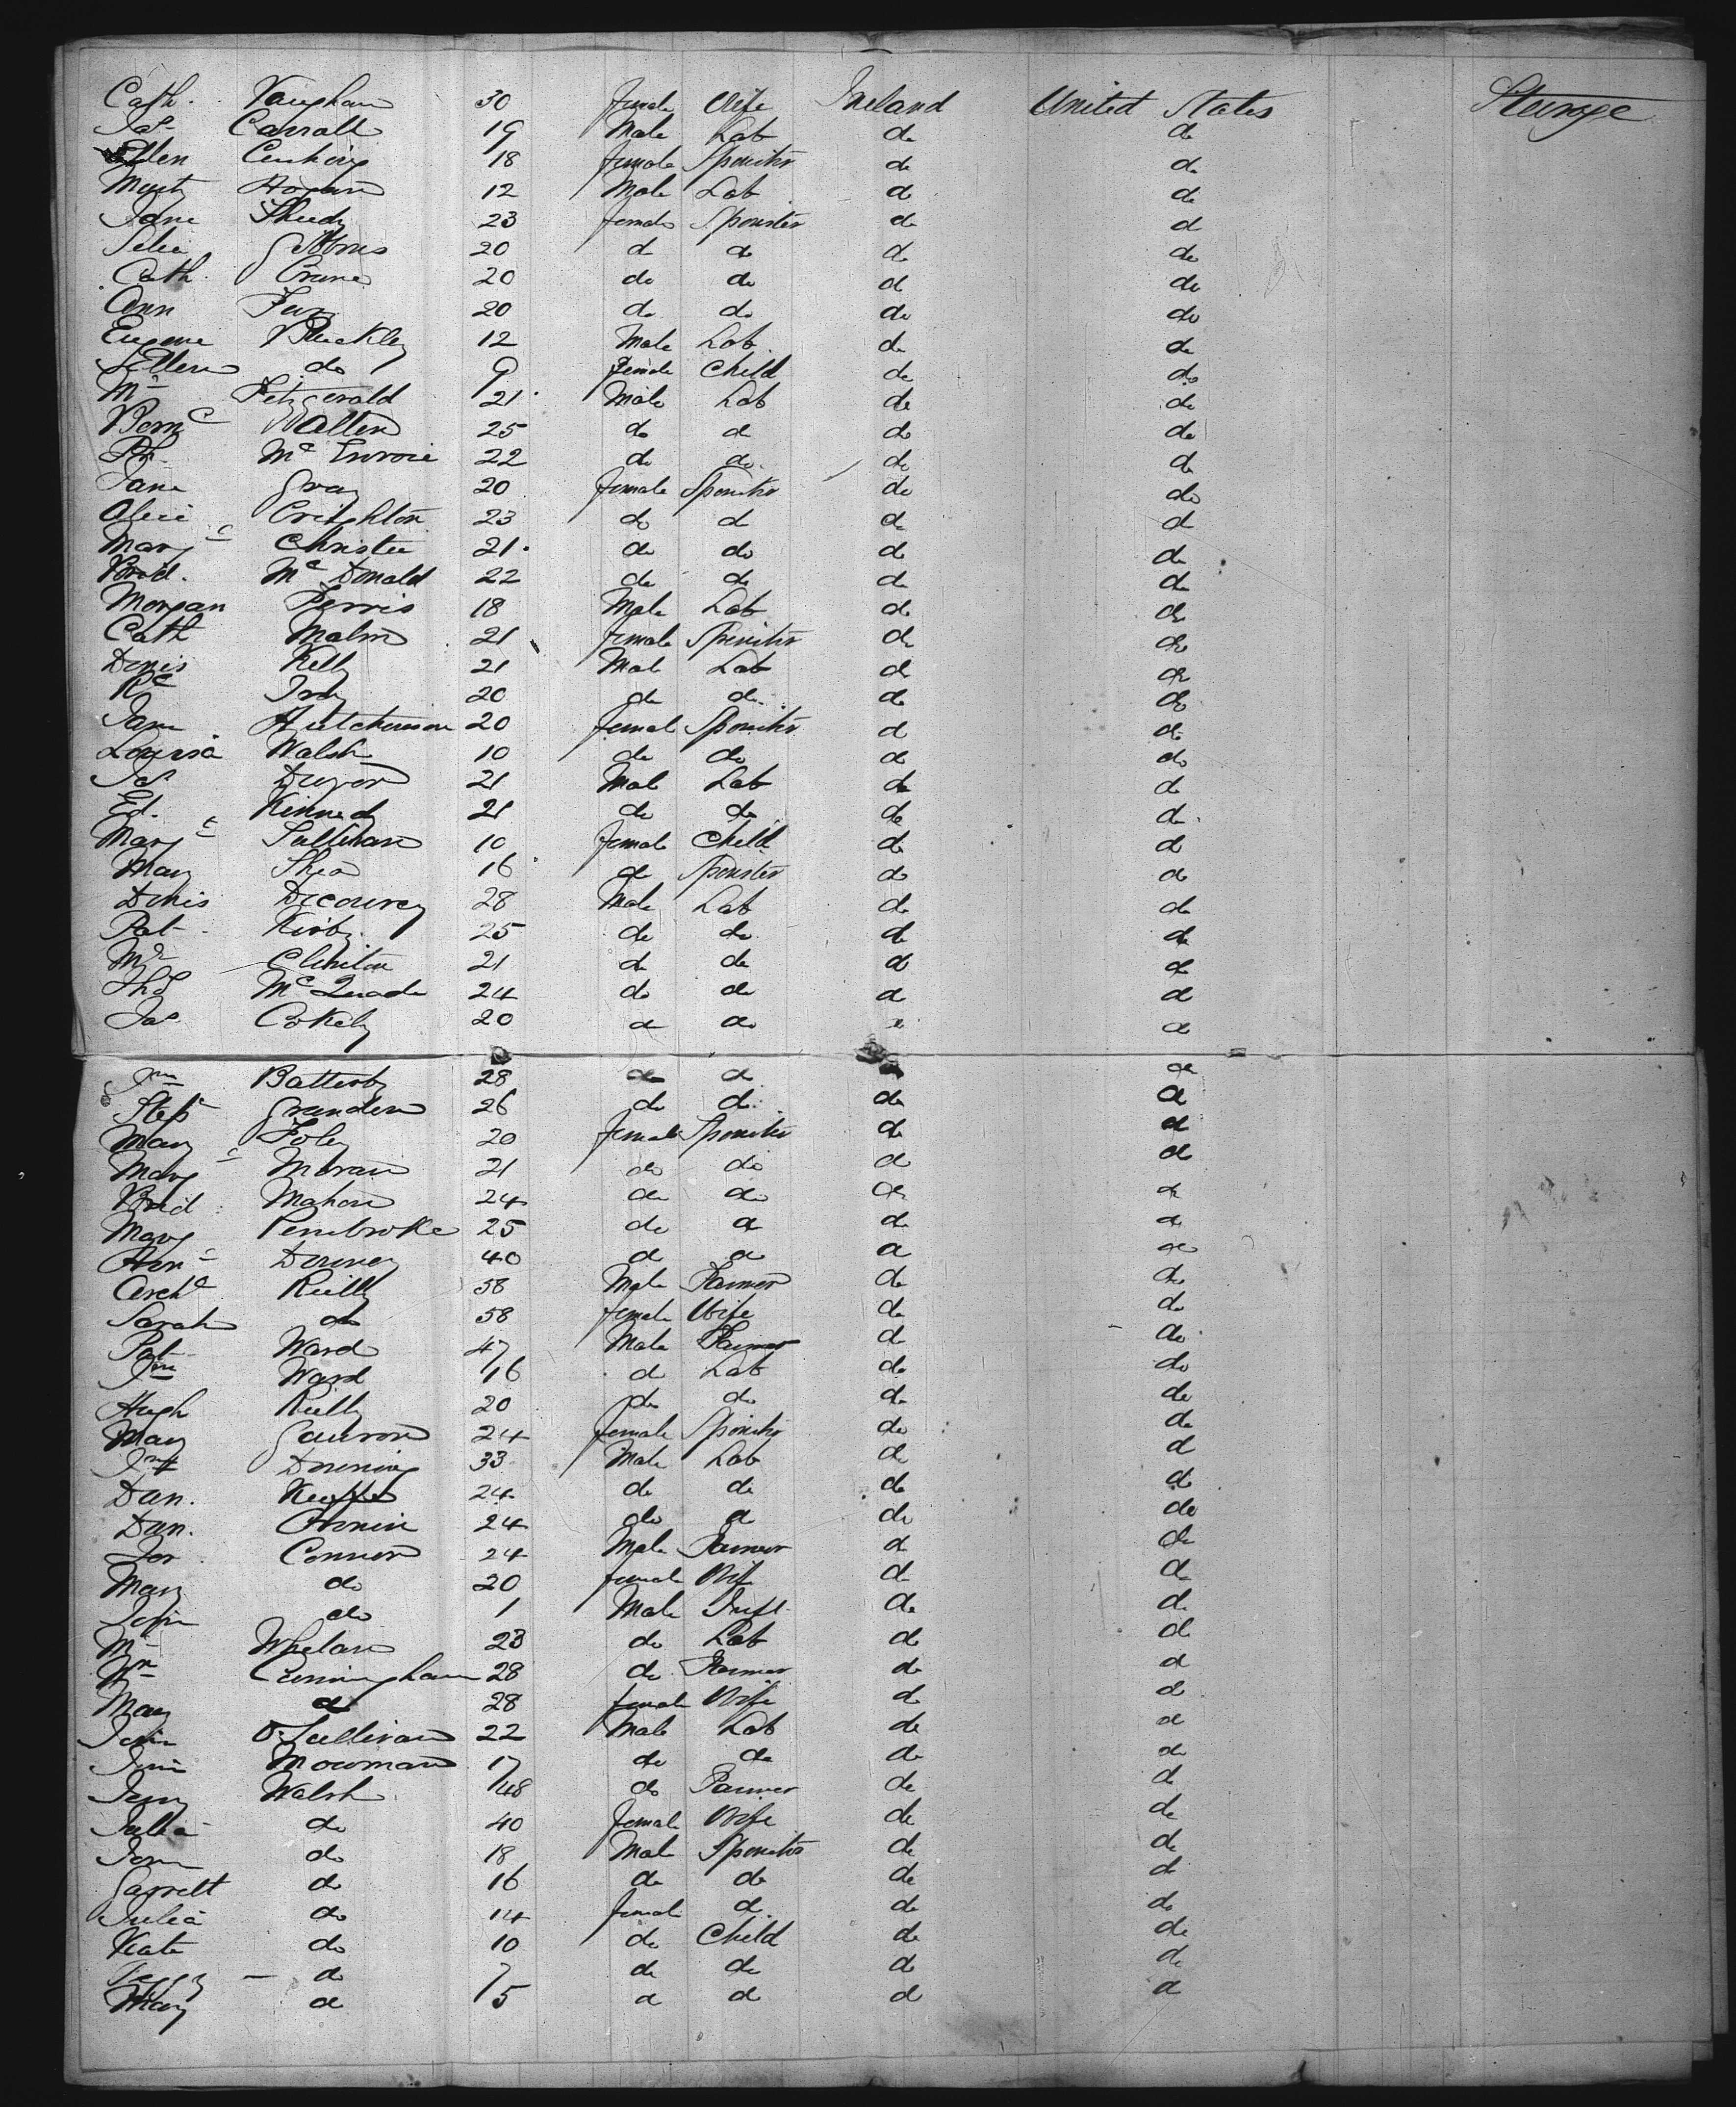 Cath. Vaughan 30 female Wife Ireland United States Steerage
Jas Carroll 19 Male Lab do do
Ellen 18 female Spinster do do
Hogan 12 Male Lab do do
Jane Sheedy 23 female Spinster do do
Gibbons 20 do do do do
Cath. Crane 20 do do do do
Ann 20 do do do do
Eugene Buckley 12 Male Lab do do
Ellen do 9 female Child do do
Ml Fitzgerald 21 Male Lab do do
Bernd 25 do do do do
Mc 22 do do do do
Jane Gray 20 female Spinster do do
Alice Crighton 23 do do do do
Margt Christie 21 do do do do
Brid. Mc Donald 22 do do do do
Morgan Ferris 18 Male Lab do do
Cath Malm 21 female Spinster do do
Denis Kelly 21 Male Lab do do
20 do do do do
Jane Hutchinson 20 female Spinster do do
Louisa Walsh 10 do do do do
Jas Dwyer 21 Male Lab do do
Ed. Kennedy 21 do do do do
Margt Sullivan 10 female Child do do
Mary Shea 16 do Spinster do do
Denis Decourcy 28 Male Lab do do
Pat Kirby 25 do do do do
Ml Clinton 21 do do do do
Thos Mc Quade 24 do do do do
Jas Cokely 20 do do do do
Jno Battersby 28 do do do do
Step 26 do do do do
Mary Foley 20 female Spinster do do
Margt Moran 21 do do do do
Brid Mahon 24 do do do do
Mary Pembroke 25 do do do do
Hon Downey 40 do do do do
Archd Reilly 58 Male Farmer do do
Sarah do 58 female Wife do do
Pat Ward 47 Male Farmer do do
Jno Ward 16 do Lab do do
Hugh Reilly 20 do do do do
Mary 24 female Spinster do do
Downing 33 Male Lab do do
Dan. Keeffe 24 do do do do
Dan. Cronin 24 do do do do
Jer Connor 24 Male Farmer do do
Mary do 20 female Wife do do
John do 1 Male Inft do do
Ml Whelan 23 do Lab do do
Wm Cunningham 28 do Farmer do do
Mary do 28 female Wife do do
John O'Sullivan 22 Male Lab do do
17 do do do do
Jerry Walsh 48 do Farmer do do
Julia do 40 female Wife do do
do 18 Male Spinster do do
Garrett do 16 do do do do
Julia do 14 female do do do
Kate do 10 do Child do do
Peggy do 7 do do do do
Mary do 5 do do do do